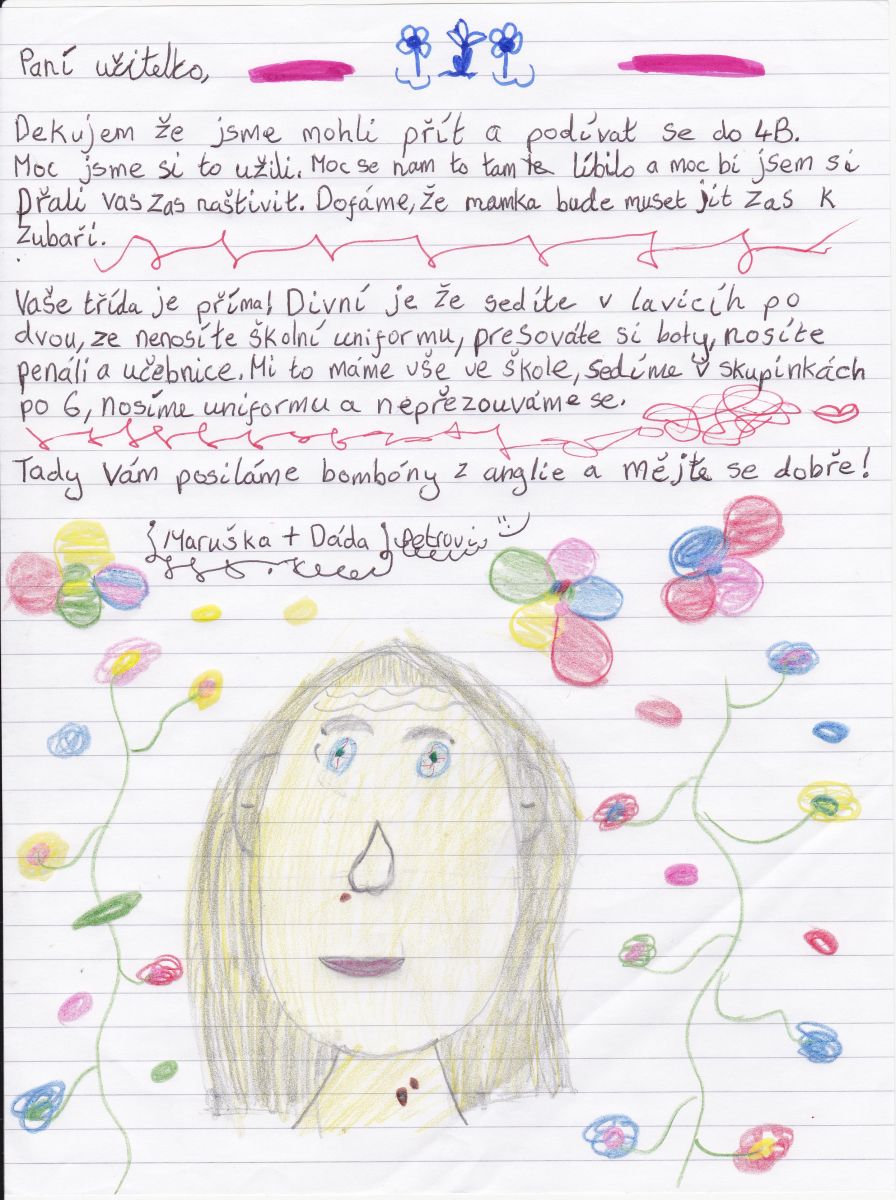 Paní učitelko,
Dekujem že jsme mohli přít a podívat se do 4B.
Moc jsme si to užili. Moc se nam to tam líbilo a moc bi jsem si
přáli vas zas naštivit. Dofáme, že mamka bude muset jít zas k
zubaři.
Vaše třída je příma! Divní je že sedíte v lavicíh po
dvou, ze nenosíte školní uniformu, presováte si boty, nosíte
penáli a učebnice. Mi to máme vše ve škole, sedíme v skupinkách
po 6, nosíme uniformu a nepřezouváme se.
Tady Vám posíláme bombóny z anglie a mějte se dobře!
{Maruška + Dáda} Petrovi